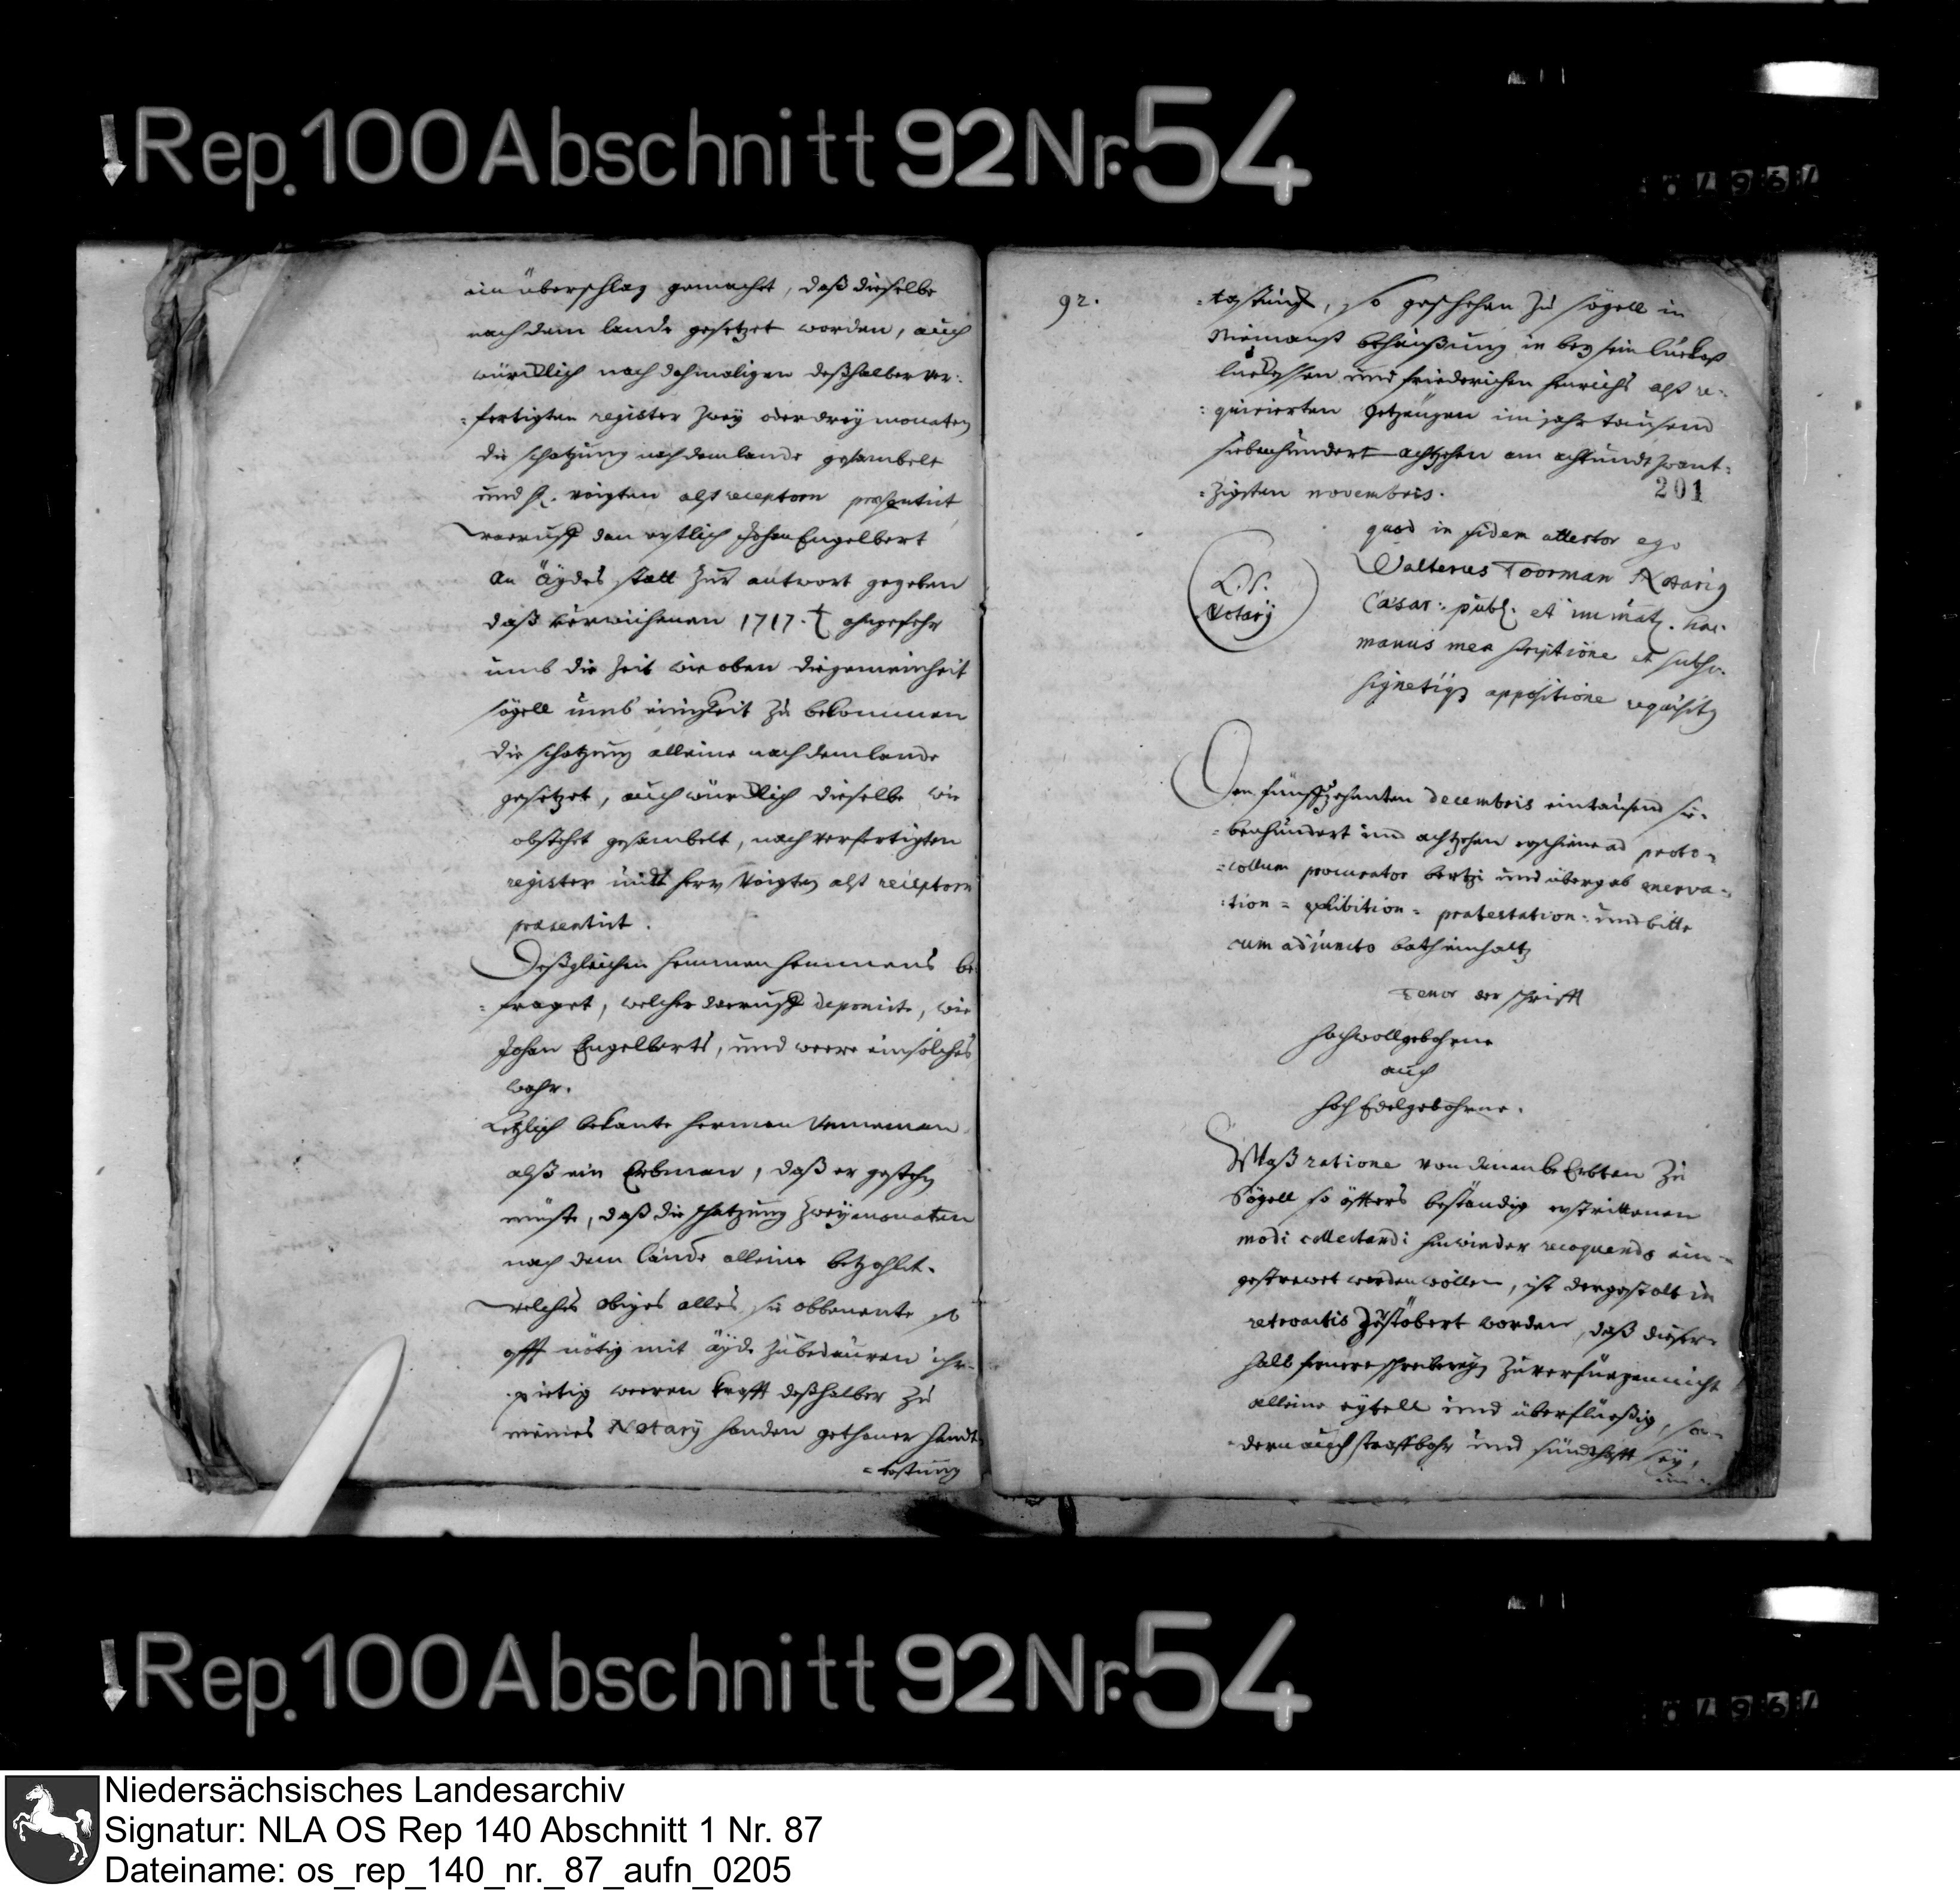 Rep. 100 Abschnitt 92 Nr. 54
ein überschlag gemachet, daß dieselbe
nach dem lande gesetzet worden, auch
würcklich nach dahmaligen deßhalber ver:
=fertigten register zwey oder drey monaten
die schatzung nach dem lande gesambelt
und H. voigten alß receptorn præsentirt
worauff den erstlich Johan Engelbert
an äydes statt zur antwort gegeben
daß verwichenen 1717. ohngefehr
umb die Zeit wie oben die gemeinheit
Sögell umb einigkeit zu bekommen
die schatzung alleine nach dem lande
gesetzet, auch würcklich dieselbe wie
obstehet gesambelt, nach verfertigten
register undt herr Voigten alß receptorn
præsentirt.
Deßgleichen Hemmen Hemmens be
=fraget, welcher darauff deponirte, wie
Johan Engelberts, und were ein solches
wahr.
Letzlich bekante Herman Nieman
alß ein Erbman, daß er gestehen
müste, daß die schatzung zwey monaten
nach dem lande alleine bezahlet.
welches obiges alles sie obbenente so
offt nötig mit äyde zu beteuren ihr
=pietig weren krafft deßhalber zu
meines Notarÿ handen gethaner handt
=tastung
92.
=tastung, so geschehen zu Sögell in
Niemans behaußung in bey sein Lückaß
und Friederichen Henrichs alß re:
:quirierten getzeugen im jahr tausend
siebenhundert achtzehen am acht undt zwant:
=zigsten novembris.
201
quod in fidem attestor ego
Walterus Toorman Notarius
Cæsar: publ: et immat. hac
manus mea scriptione et subsc.
signetique appositione requisitus
L.S.
Notarÿ
Den fünffzehenten decembris eintausend sie-
=benhundert und achtzehen erschiene ad proto-
=collum procurator bertzi und übergab enerva-
:tion= exhibition= protestation= und bitte
cum adjuncto bath einhaltz
Tenor der schrifft
Hochwollgebohrne
auch
Hoch Edelgebohrne.
Waß ratione von denen be Erbten zu
Sögell so öffters beständig erstrittenen
modi collectandi hinwieder ein-
gestrewet werden wöllen, ist dergestalt in
retroactis zustöbert worden, daß dieser-
halb fernere schreibereyen zu verfüegen nicht
alleine eytell und überflüeßig, son-
=dern auch straffbahr und sündhafft sey,
Rep. 100 Abschnitt 92 Nr. 54
Niedersächsisches Landesarchiv
Signatur: NLA OS Rep 140 Abschnitt 1 Nr. 87
Dateiname: os_rep_140_nr._87_aufn_0205